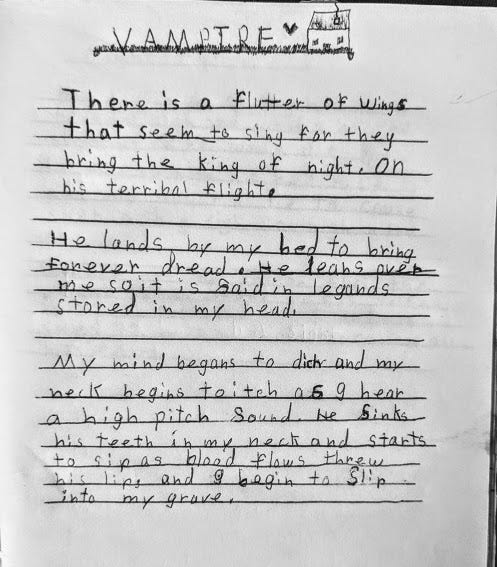 VAMPIRE
There is a flutter of wings
that seem to sing for they
bring the king of night. On
his terribal flight.
He lands by my bed to bring
forever dread. He leans over
me so it is said in legands
stored in my head.
My mind begans to dich and my
neck begins to itch as I hear
a high pitch sound. He sinks
his teeth in my neck and starts
to sip as blood flows threw
his lips and I begin to slip
into my grave.